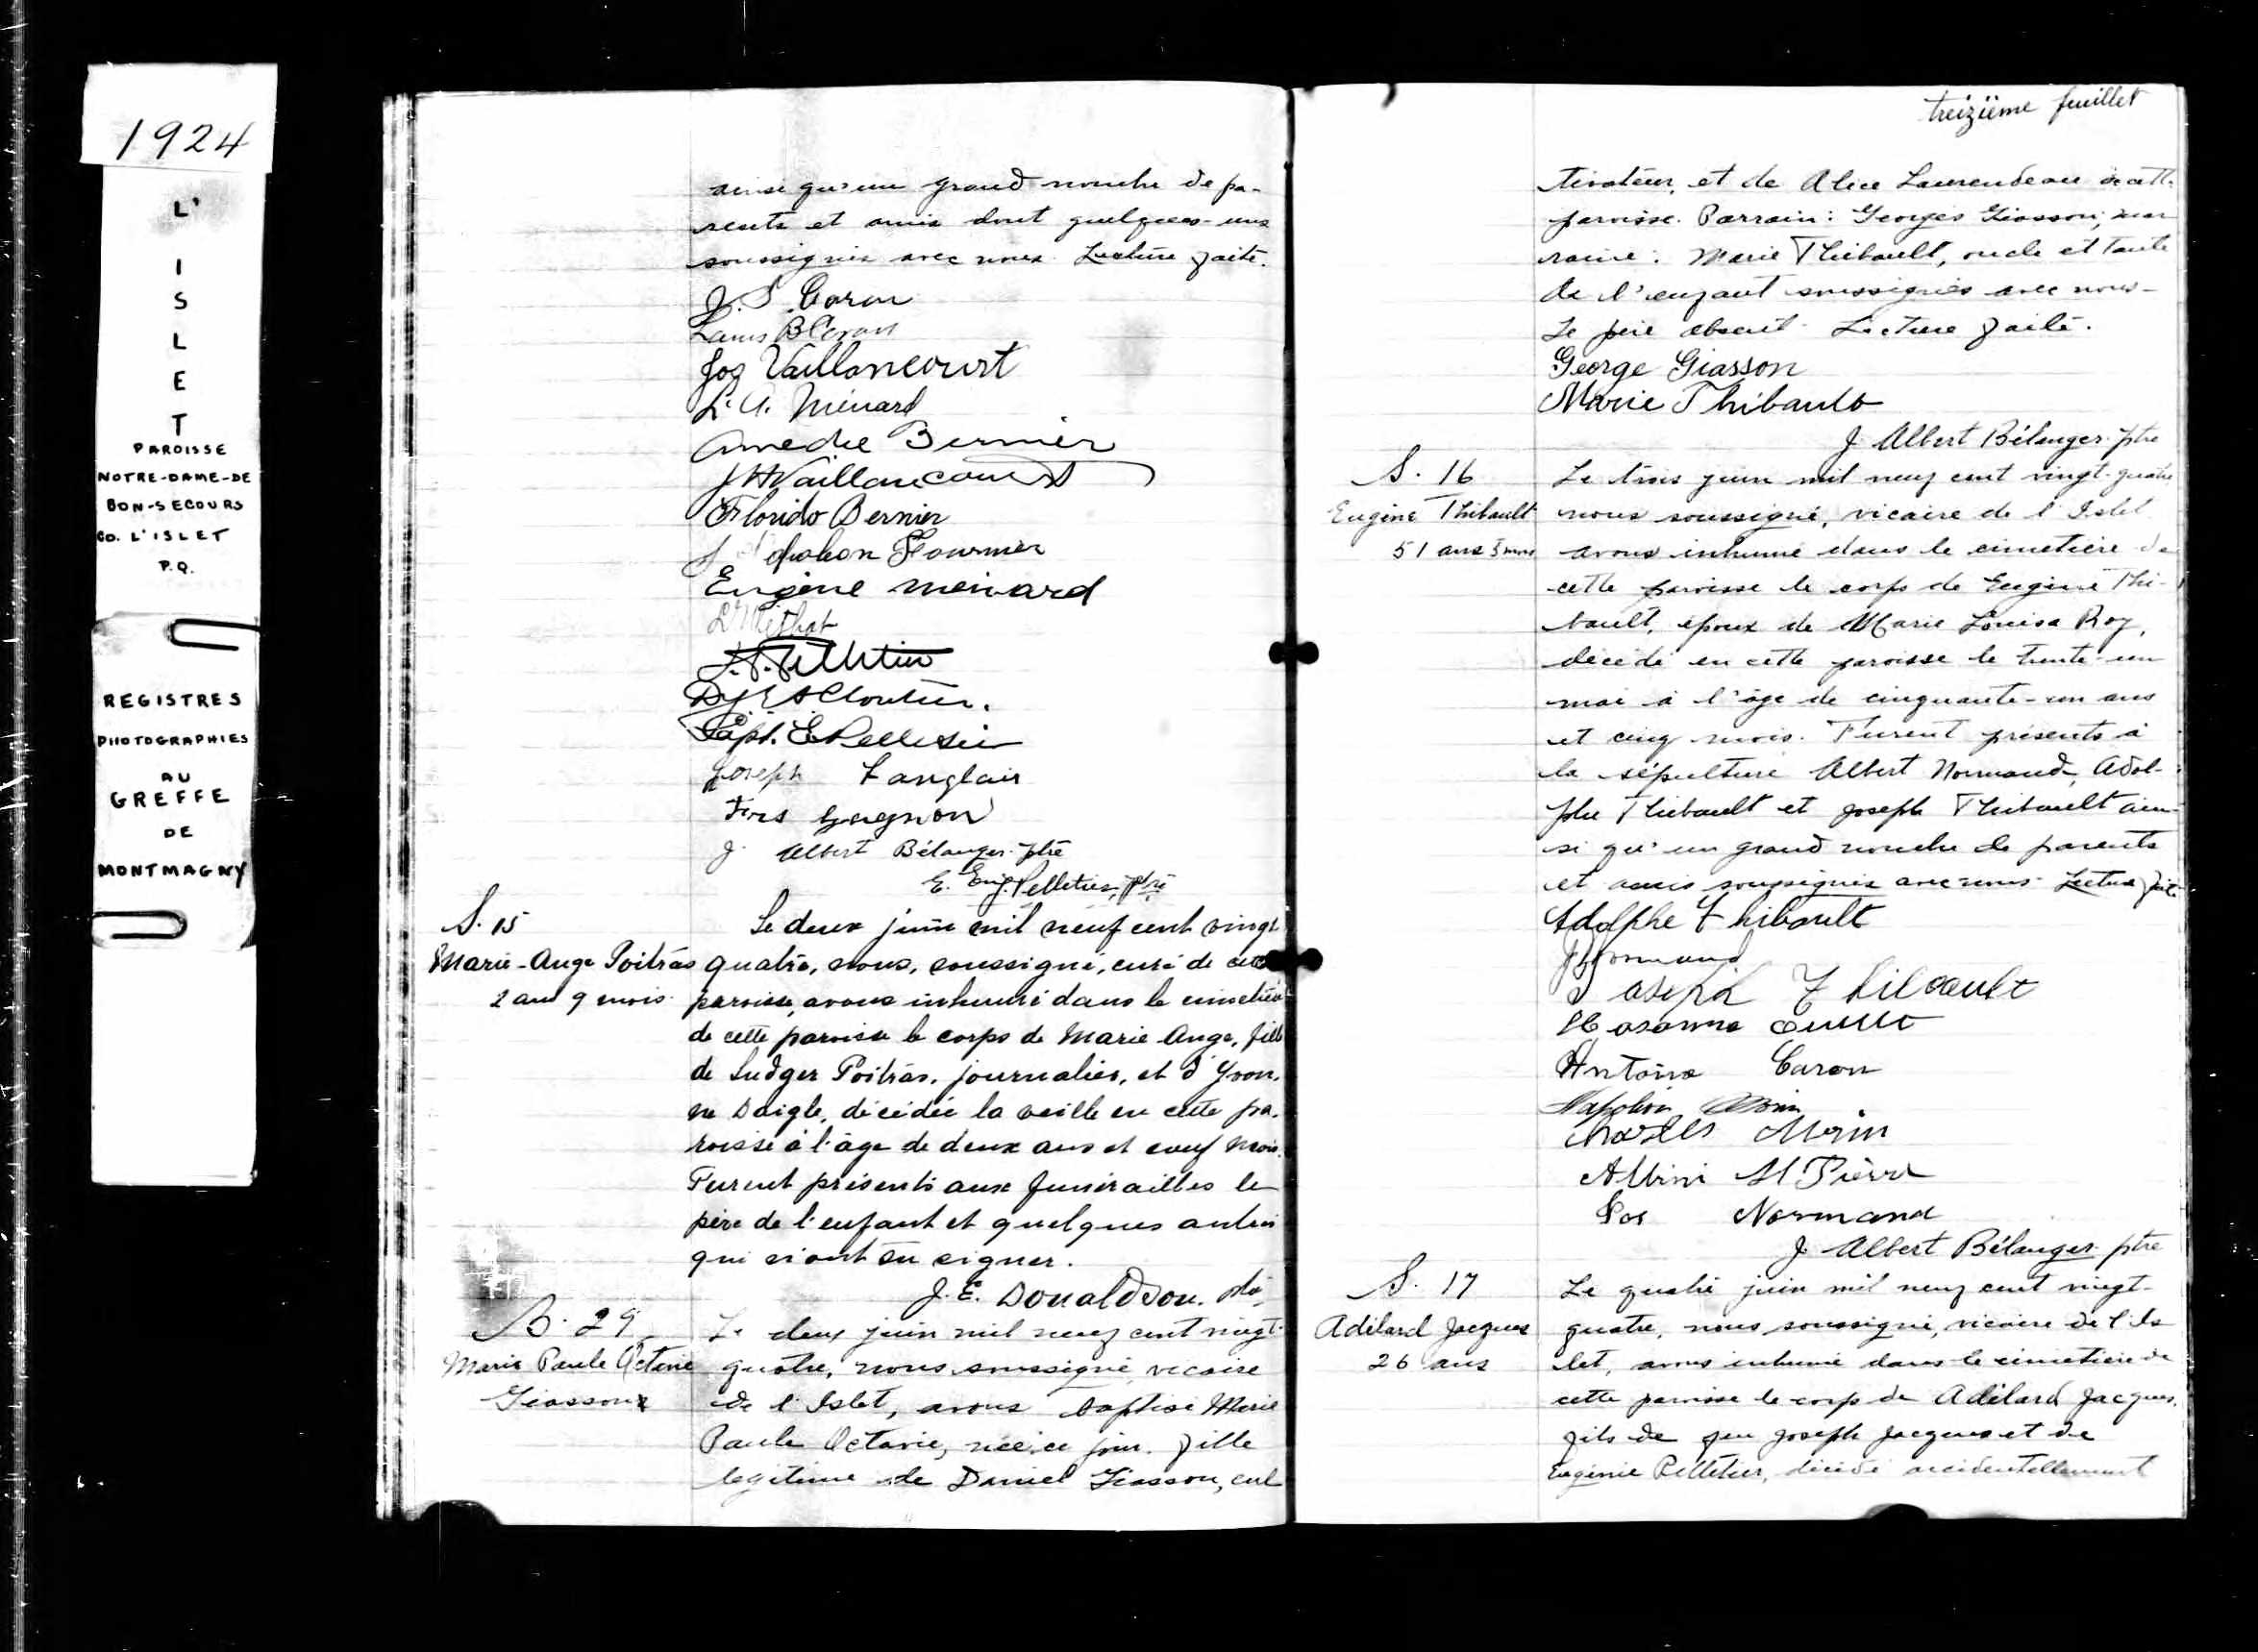 1924
L'
I
S
L
E
T
PAROISSE
NOTRE-DAME-DE
BON-SECOURS
CO. L'ISLET
P.Q.
REGISTRES
PHOTOGRAPHIES
AU
GREFFE
DE
MONTMAGNY
ainsi qu'un grand nombre de pa-
rents et amis dont quelques-uns
soussignés avec nous. Lecture faite.
J. S. Caron
Jos Vaillancourt
L. A. Ménard
Amedée Bernier
J H Vaillancourt
Florido Bernier
Fournier
Eugène Meinard
Capt. E Pelletier
Joseph Langlais
Frs Gagnon
J. Albert Bélanger ptre
E. Eug. Pelletier, ptre
S. 15
Marie-Ange Poitras
2 ans 9 mois
Le deux juin mil neuf cent vingt
quatre, nous, soussigné, curé de cette
paroisse, avons inhumé dans le cimetière
de cette paroisse le corps de Marie Ange, fille
de Ludger Poitras, journalier, et d'Yvon-
ne Daigle, décédée la veille en cette pa-
roisse à l'âge de deux ans et neuf mois.
Furent présents aux funérailles le
père de l'enfant et quelques autres
qui n'ont su signer.
J. E. Donaldson. ptre
B. 29
Marie Paule Octavie
Giasson
Le deux juin mil neuf cent vingt-
quatre, nous soussigné, vicaire
de l'Islet, avons baptisé Marie
Paule Octavie, née ce jour, fille
légitime de Daniel Giasson, cul
treizième feuillet
tivateur, et de Alice Laurendeau de cette
paroisse. Parrain: Georges Giasson, mar
raine: Marie Thibault, oncle et tante
de l'enfant soussignés avec nous-
Le père absent. Lecture faite.
George Giasson
Marie Thibault
J. Albert Bélanger ptre
S. 16
Eugène Thibault
51 ans 5 mois
Le trois juin mil neuf cent vingt-quatre
nous soussigné, vicaire de l'Islet
avons inhumé dans le cimetière de
cette paroisse le corps de Eugène Thi-
bault, époux de Marie Louisa Roy,
décédé en cette paroisse le trente-un
mai à l'âge de cinquante-un ans
et cinq mois. Furent présents à
la sépulture Albert Normand, Adol-
phe Thibault et Joseph Thibault ain-
si qu'un grand nombre de parents
et amis soussignés avec nous. Lecture faite
Adolphe Thibault
Normand
Joseph Thibault
Antoine Caron
Napoléon Morin
Charles Morin
St Pierre
Jos Normand
J. Albert Bélanger ptre
S. 17
Adélard Jacques
26 ans
Le quatre juin mil neuf cent vingt-
quatre, nous soussigné, vicaire de l'Is
let, avons inhumé dans le cimetière de
cette paroisse le corps de Adélard Jacques,
fils de feu Joseph Jacques et de
Eugénie Pelletier, décédé accidentellement